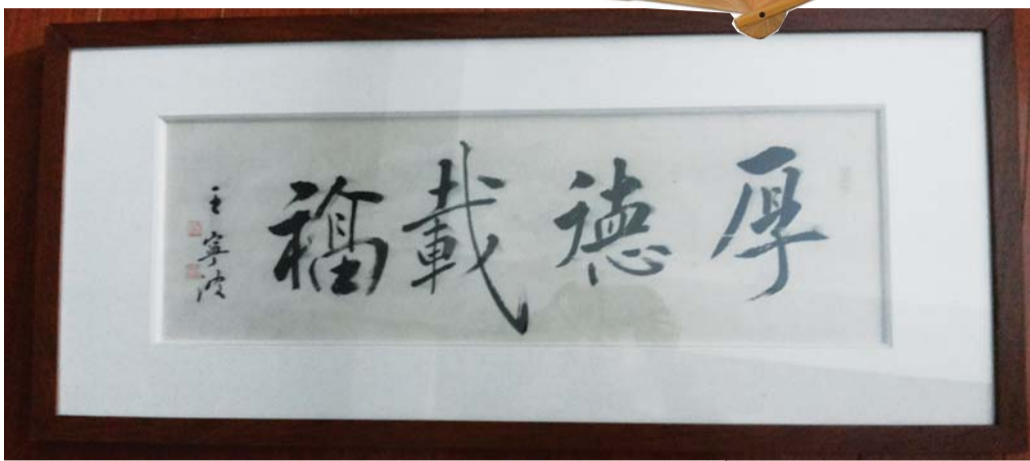 厚德載福
王寧波